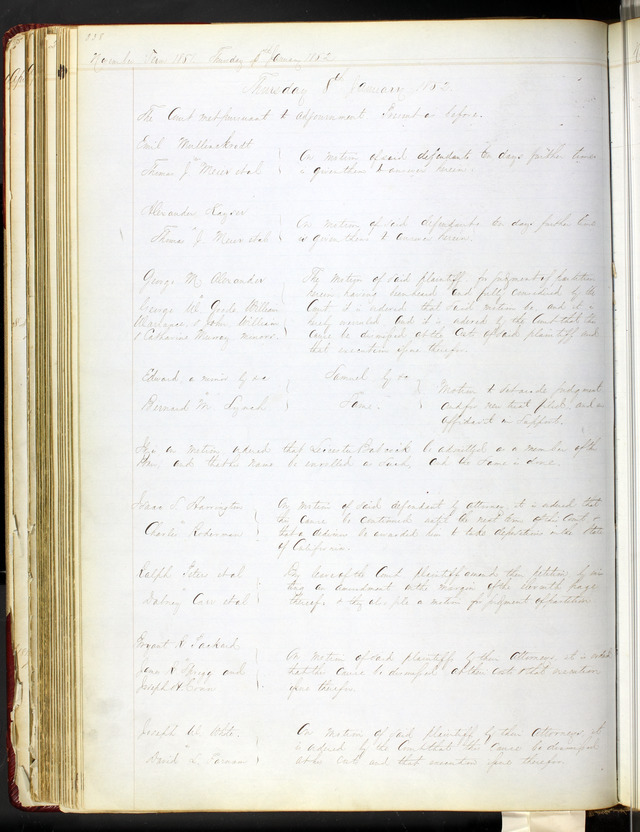 238
November Term 1851 Thursday 8th January 1852
Thursday 8th January 1852
The Court met pursuant to adjournment Present as before.
Emil
vs
Thomas J. Meier et al
On motion of said defendants ten days further time
is given them to answer herein.
Alexander Kayser
vs
Thomas J. Meier et al
On motion of said defendants ten days further time
is given them to answer herein.
George M. Alexander
vs
George W. Goode William
John William
& Catharine minors.
The Motion of said Plaintiff for judgment of partition
herein having been heard and fully considered by the
Court it is ordered that said motion be and it is
hereby overruled and it is ordered by the Court that the
cause be dismissed at the costs of said plaintiff and
that execution issue therefor.
Edward, a minor by &c
vs
Bernard M. Lynch
Samuel by &c
Same.
Motion to set aside judgment
and for new trial filed and an
affidavit in support.
It is on motion ordered that Babcock be admitted as a member of the
Bar, and that his name be enrolled as such, and the same is done.
Isaac S. Barrington
vs
Charles
On motion of said defendant by attorney, it is ordered that
this cause be continued until the next term of this Court &
that a dedimus be awarded him to take depositions in the State
of California.
Ralph Peters et al
vs
Dabney Carr et al
By leave of the Court Plaintiffs amend their petition by
an amendment in the margin of the page
thereof, & they also file a motion for judgment of partition
R. Packard
vs
Jane R. Sprigg and
Joseph H. Conn
On Motion of said plaintiffs by their Attorneys, it is ordered
that this cause be dismissed at their costs & that execution
issue therefor.
Joseph W. White
vs
David L.
On motion of said Plaintiff by their Attorneys, it
is ordered by the Court that this cause be dismissed
at his costs and that execution issue therefor